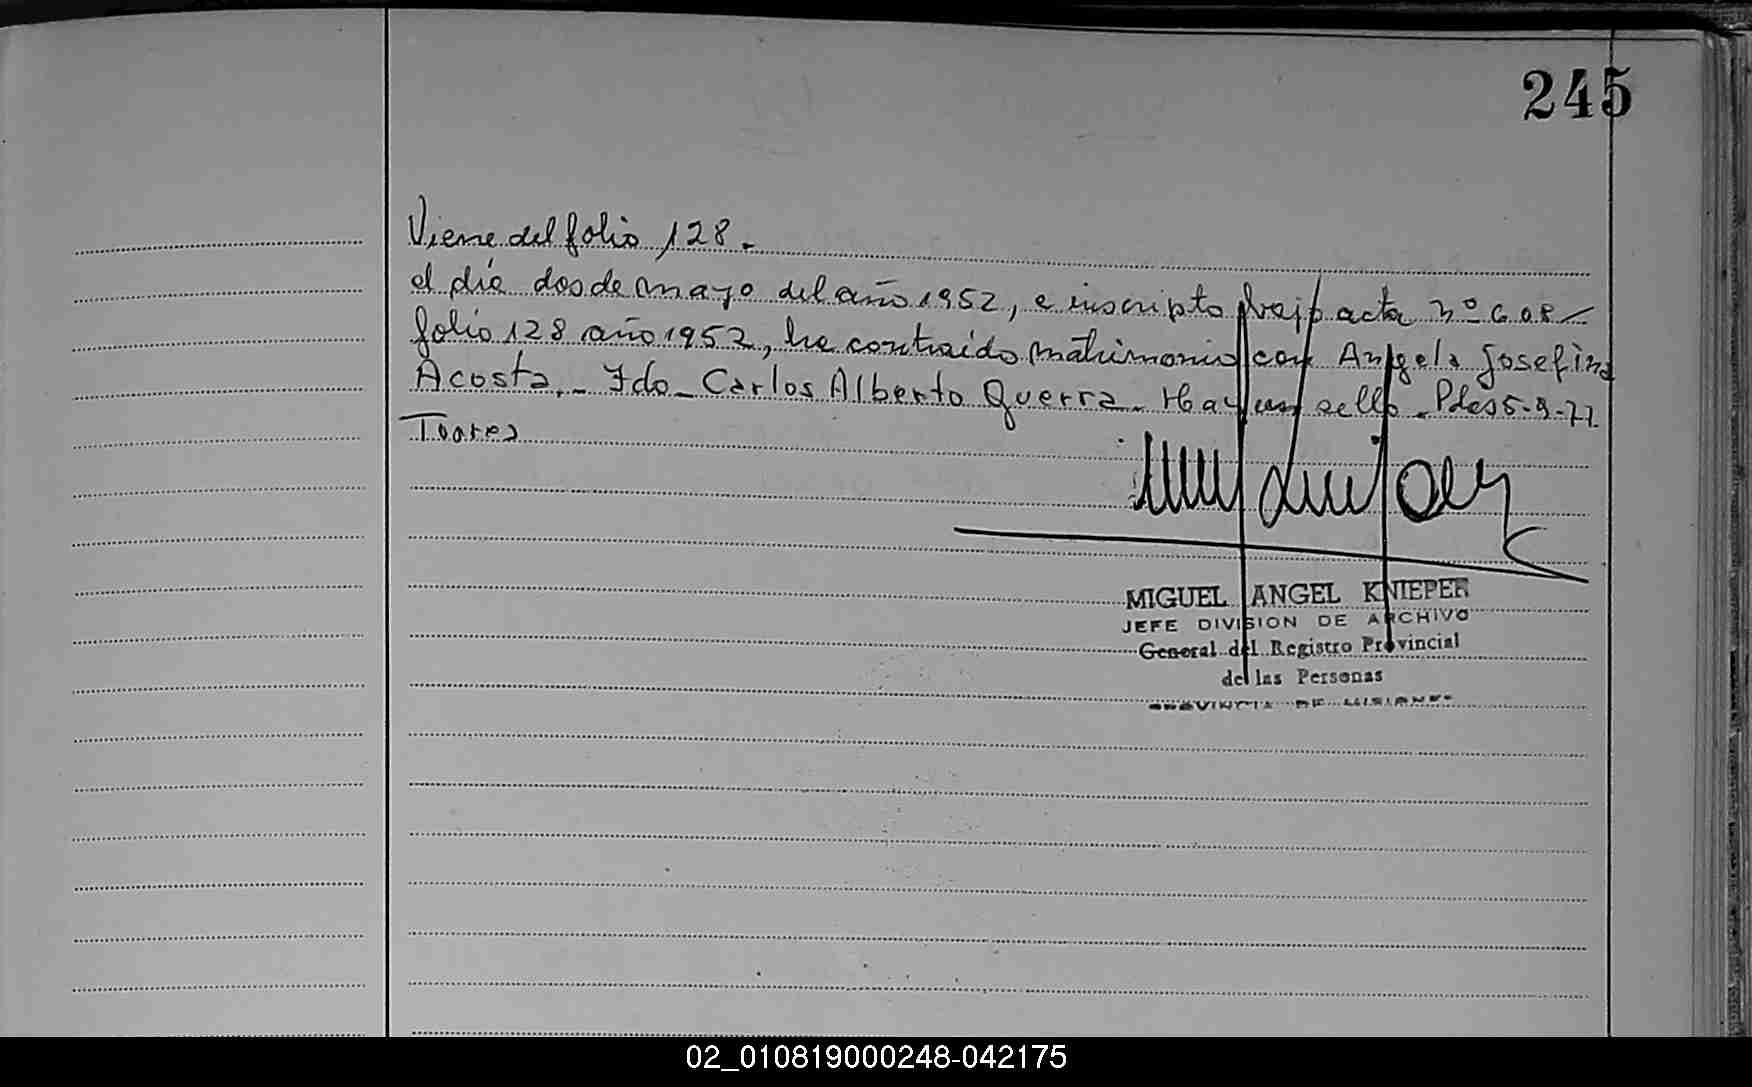 245
Viene del folio 128.
el día dos de mayo del año 1952, e inscripto bajo acta nº 608
folio 128 año 1952, ha contraído matrimonio con Angela Josefina
Acosta._ Fdo_ Carlos Alberto Guerra_ Hay un sello_ Pdas 5-9-77.
MIGUEL ANGEL KNIEPER
JEFE DIVISION DE ARCHIVO
General del Registro Provincial
de las Personas
PROVINCIA DE MISIONES
02_010819000248-042175